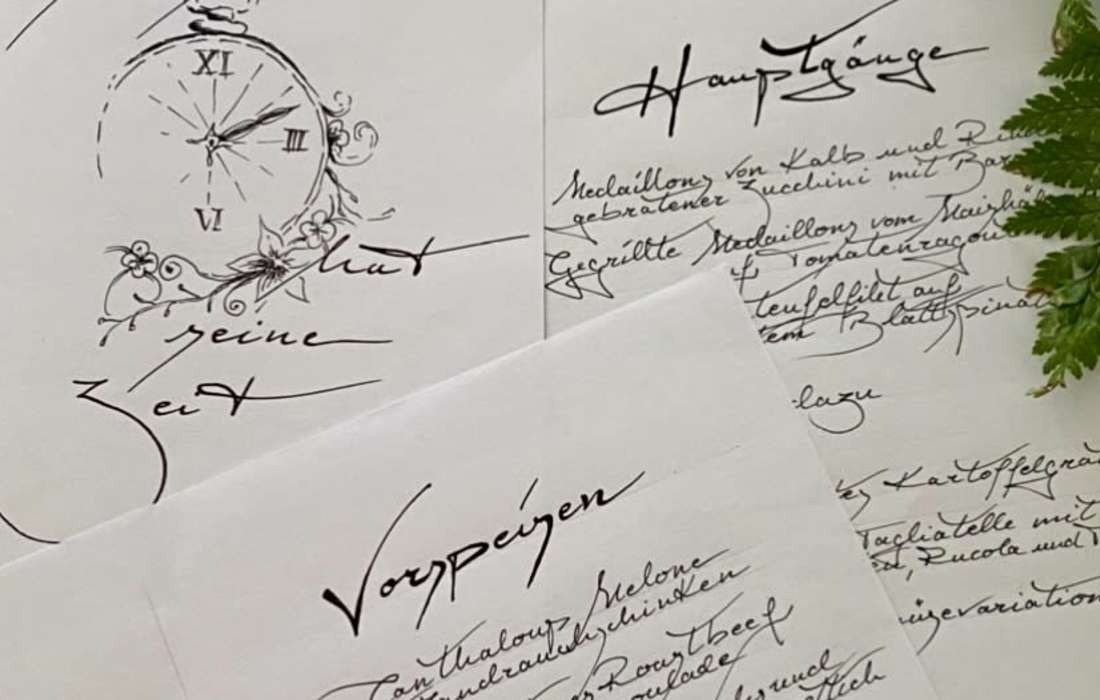 XI
III
VI
hat
seine
Zeit
Hauptgänge
Medaillons von Kalb und
gebratener Zucchini mit
Gegrillte Medaillons vom
Tomatenragou
teufelfilet auf
tem Blattspinat
dazu
Kartoffelgra
Tagliatelle mit
Rucola und
üsevariation
Vorspeisen
Canthaloup Melone
Landrauchschinken
Roastbeef
oulade
und